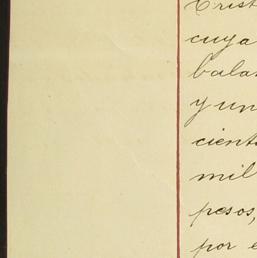 Crist
cuya
bala
y un
cient
mil
pesos,
por e